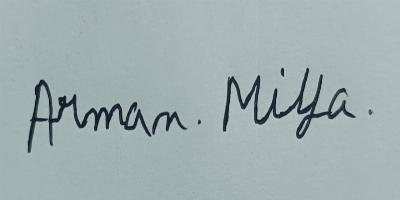 Arman. Milya.